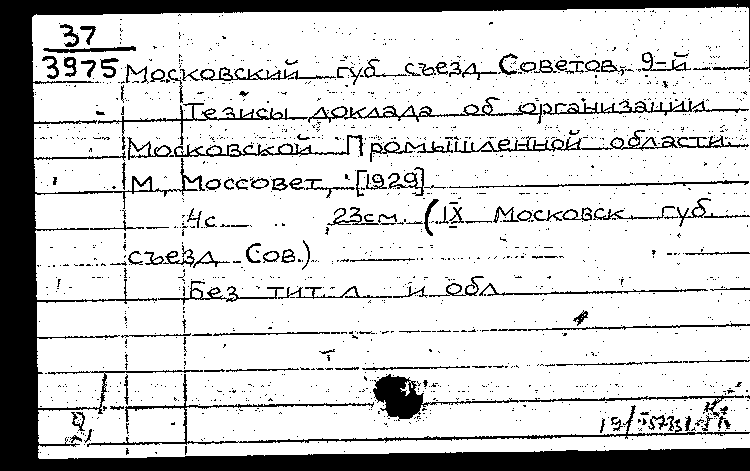 37
3975 Московский губ. съезд Советов, 9-й
Тезисы доклада об организации
Московской Промышленной области.
М., Моссовет, [1929].
4с. , 23см. (IX Московск. губ.
съезд Сов.)
Без тит. л. и обл.